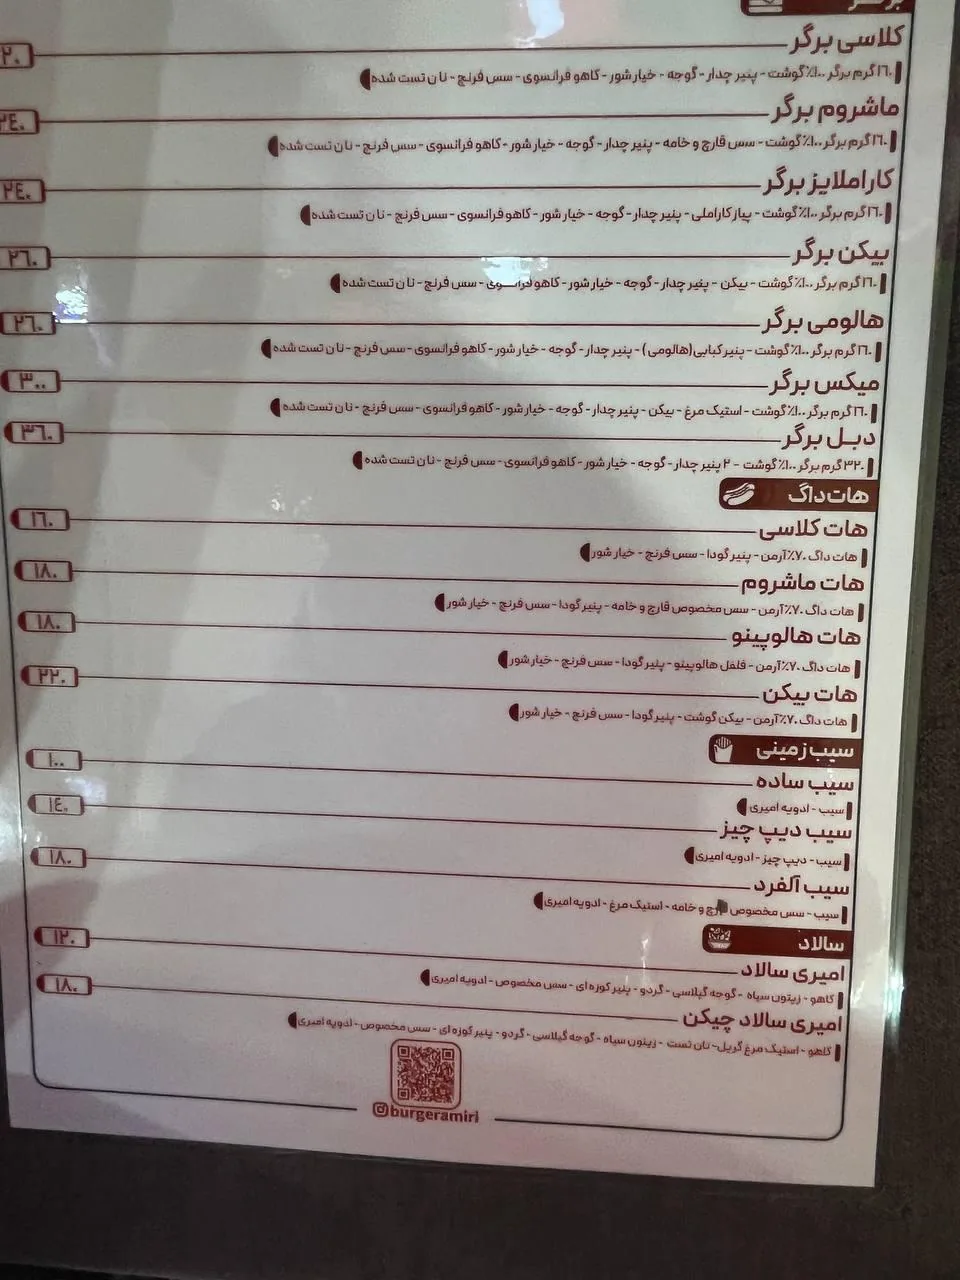 برگر
کلاسی برگر ۲۰
۱۶۰گرم برگر ۱۰۰٪گوشت - پنیر چدار - گوجه - خیارشور - کاهو فرانسوی - سس فرنچ - نان تست شده
ماشروم برگر ۲٤۰
۱۶۰گرم برگر ۱۰۰٪گوشت - سس قارچ و خامه - پنیر چدار - گوجه - خیارشور - کاهو فرانسوی - سس فرنچ - نان تست شده
کاراملایز برگر ۲٤۰
۱۶۰گرم برگر ۱۰۰٪گوشت - پیاز کاراملی - پنیر چدار - گوجه - خیارشور - کاهو فرانسوی - سس فرنچ - نان تست شده
بیکن برگر ۲۶۰
۱۶۰گرم برگر ۱۰۰٪گوشت - بیکن - پنیر چدار - گوجه - خیارشور - کاهو فرانسوی - سس فرنچ - نان تست شده
هالومی برگر ۲۶۰
۱۶۰گرم برگر ۱۰۰٪گوشت - پنیر کبابی(هالومی) - پنیر چدار - گوجه - خیارشور - کاهو فرانسوی - سس فرنچ - نان تست شده
میکس برگر ۳۰۰
۱۶۰گرم برگر ۱۰۰٪گوشت - استیک مرغ - بیکن - پنیر چدار - گوجه - خیارشور - کاهو فرانسوی - سس فرنچ - نان تست شده
دبل برگر ۳۶۰
۳۲۰گرم برگر ۱۰۰٪گوشت - ۲ پنیر چدار - گوجه - خیارشور - کاهو فرانسوی - سس فرنچ - نان تست شده
هات‌داگ
هات کلاسی ۱۶۰
هات داگ ۷۰٪آرمن - پنیر گودا - سس فرنچ - خیارشور
هات ماشروم ۱۸۰
هات داگ ۷۰٪آرمن - سس مخصوص قارچ و خامه - پنیر گودا - سس فرنچ - خیارشور
هات هالوپینو ۱۸۰
هات داگ ۷۰٪آرمن - فلفل هالوپینو - پنیر گودا - سس فرنچ - خیارشور
هات بیکن ۲۲۰
هات داگ ۷۰٪آرمن - بیکن گوشت - پنیر گودا - سس فرنچ - خیارشور
سیب‌زمینی
سیب ساده ۱۰۰
سیب - ادویه امیری
سیب دیپ چیز ۱٤۰
سیب - دیپ چیز - ادویه امیری
سیب آلفرد ۱۸۰
سیب - سس مخصوص قارچ و خامه - استیک مرغ - ادویه امیری
سالاد
امیری سالاد ۱۲۰
کاهو - زیتون سیاه - گوجه گیلاسی - گردو - پنیر کوزه ای - سس مخصوص - ادویه امیری
امیری سالاد چیکن ۱۸۰
کاهو - استیک مرغ گریل - نان تست - زیتون سیاه - گوجه گیلاسی - گردو - پنیر کوزه ای - سس مخصوص - ادویه امیری
@burgeramiri